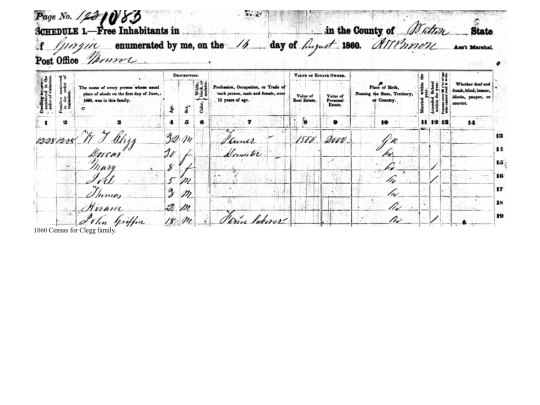 Page No. 1083
SCHEDULE 1.—Free Inhabitants in in the County of Walton State
of Georgia enumerated by me, on the 14 day of August 1860. Ass't Marshal.
Post Office Monroe
DESCRIPTION.
VALUE OF ESTATE OWNED.
The name of every person whose usual place of abode on the first day of June, 1860, was in this family.
Age.
Sex.
Profession, Occupation, or Trade of each person, male and female, over 15 years of age.
Value of Real Estate.
Value of Personal Estate.
Place of Birth, Naming the State, Territory, or Country.
Whether deaf and dumb, blind, insane, idiotic, pauper, or convict.
1 2 3 4 5 6 7 8 9 10 11 12 13 14
1228 1228 W T Clegg 32 M Farmer 1500 2000 Ga
Dorcas 30 f Domestic Do 14
Mary 8 f Do 1 15
Joel 5 M Do 1 16
Thomas 3 M Do 17
Hiram 2 M Do 18
John Griffin 18 M Farm laborer Do 1 19
1860 Census for Clegg family.